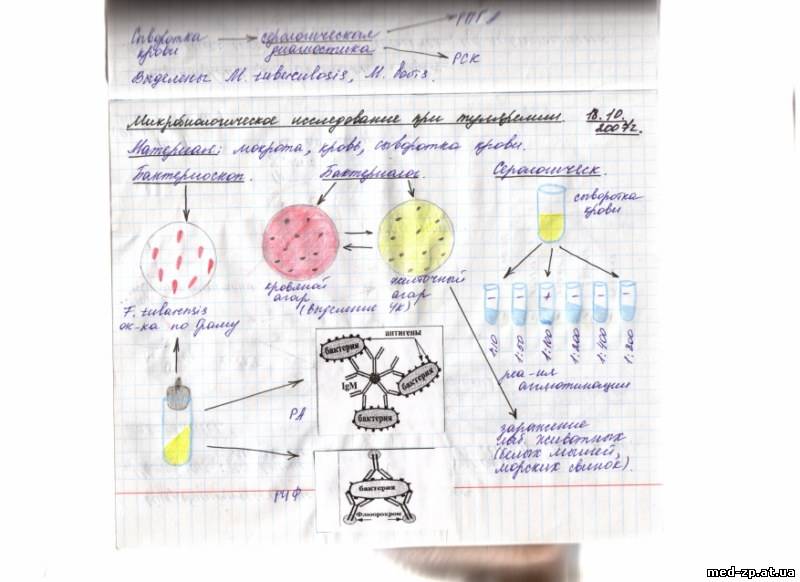 РПГА
Сыворотка крови
серологическая диагностика
РСК
Выделены M. tuberculosis, M. bovis.
Микробиологическое исследование при туляремии. 18.10. 2007г.
Материал: мокрота, кровь, сыворотка крови.
Бактериоскоп.
Бактериолог.
Серологическ.
сыворотка
крови
кровяной
агар
желточный
агар
(выделение ЧК)
F. tularensis
ок-ка по Граму
- - + - - -
1:10
1:50
1:100
1:200
1:400
1:800
реа-ия
агглютинации
антигены
бактерия
бактерия
IgM
бактерия
РА
заражение
лаб. животных
(белых мышей,
морских свинок).
бактерия
Флюорохром
РИФ
med-zp.at.ua